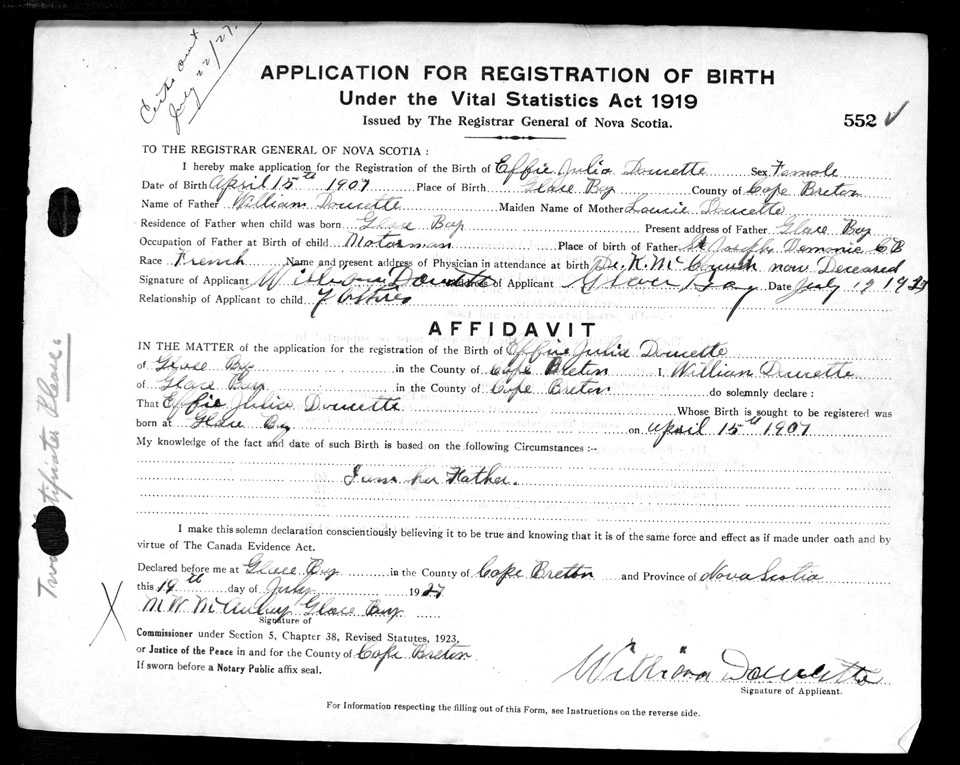 Certs out
July 22/27.
APPLICATION FOR REGISTRATION OF BIRTH
Under the Vital Statistics Act 1919
Issued by The Registrar General of Nova Scotia.
552 ✓
TO THE REGISTRAR GENERAL OF NOVA SCOTIA :
I hereby make application for the Registration of the Birth of Effie Julia Doucette Sex Female
Date of Birth April 15th 1907 Place of Birth Glace Bay County of Cape Breton
Name of Father William Doucette Maiden Name of Mother Doucette
Residence of Father when child was born Glace Bay Present address of Father Glace Bay
Occupation of Father at Birth of child Motorman Place of Father St Joseph C B
Race French Name and present address of Physician in attendance at birth Dr. K. now Deceased
Signature of Applicant William Doucette of Applicant Glace Bay Date July 19 1927
Relationship of Applicant to child
AFFIDAVIT
IN THE MATTER of the application for the registration of the Birth of Effie Julia Doucette
of Glace Bay in the County of Cape Breton I, William Doucette
of Glace Bay in the County of Cape Breton do solemnly declare :
That Effie Julia Doucette Whose Birth is sought to be registered was
born at Glace Bay on April 15th 1907
My knowledge of the fact and date of such Birth is based on the following Circumstances :--
I am her Father.
I make this solemn declaration conscientiously believing it to be true and knowing that it is of the same force and effect as if made under oath and by
virtue of The Canada Evidence Act.
Declared before me at Glace Bay in the County of Cape Breton and Province of Nova Scotia
this 19th day of July 1927
X
M W McAuley Glace Bay
Signature of
Commissioner under Section 5, Chapter 38, Revised Statutes, 1923,
or Justice of the Peace in and for the County of Cape Breton
If sworn before a Notary Public affix seal.
William Doucette
Signature of Applicant.
For Information respecting the filling out of this Form, see Instructions on the reverse side.
Two Please.